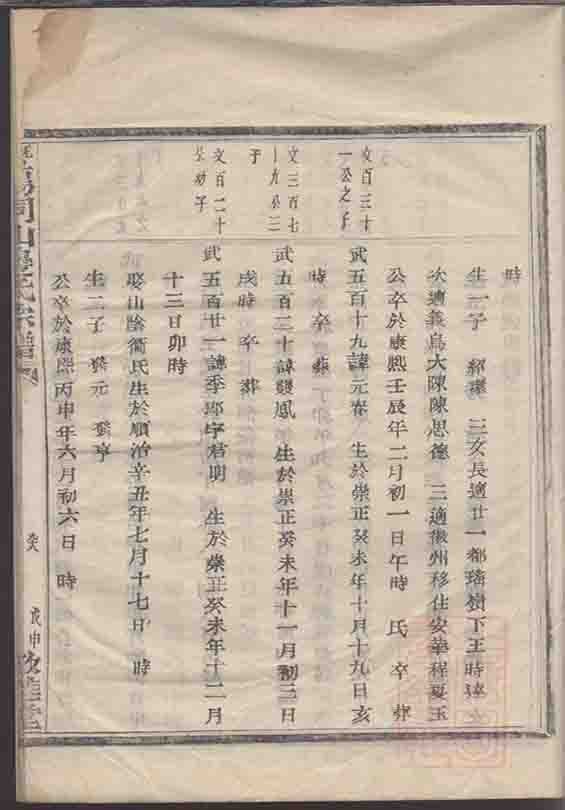 時
生一子 紹璂 三女長適廿一都瑤樹下王時達
次適義烏大陳陳思德 三適徽州移住安華程夏玉
公卒於康熙壬辰年二月初一日午時 氏卒 葬
文百三十
一公之子
武五百十九諱元春 生於崇正癸未年十月十九日亥
時 卒 葬
文三百七
十九公三
子
武五百二十諱發鳳 生於崇正癸未年十一月初三日
戌時 卒 葬
文百二十
公幼子
武五百廿一諱季 字君明 生於崇正癸未年十二月
十三日卯時
娶山陰衛氏生於順治辛丑年七月十七日 時
生二子 發元 發亨
公卒於康熙丙申年六月初六日 時
同山 氏宗譜
戊申